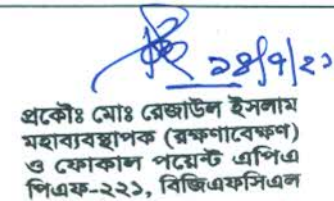 ২৪/৭/২১
প্রকৌঃ মোঃ রেজাউল ইসলাম
মহাব্যবস্থাপক (রক্ষণাবেক্ষণ)
ও ফোকাল পয়েন্ট এপিএ
পিএফ-২২১, বিজিএফসিএল